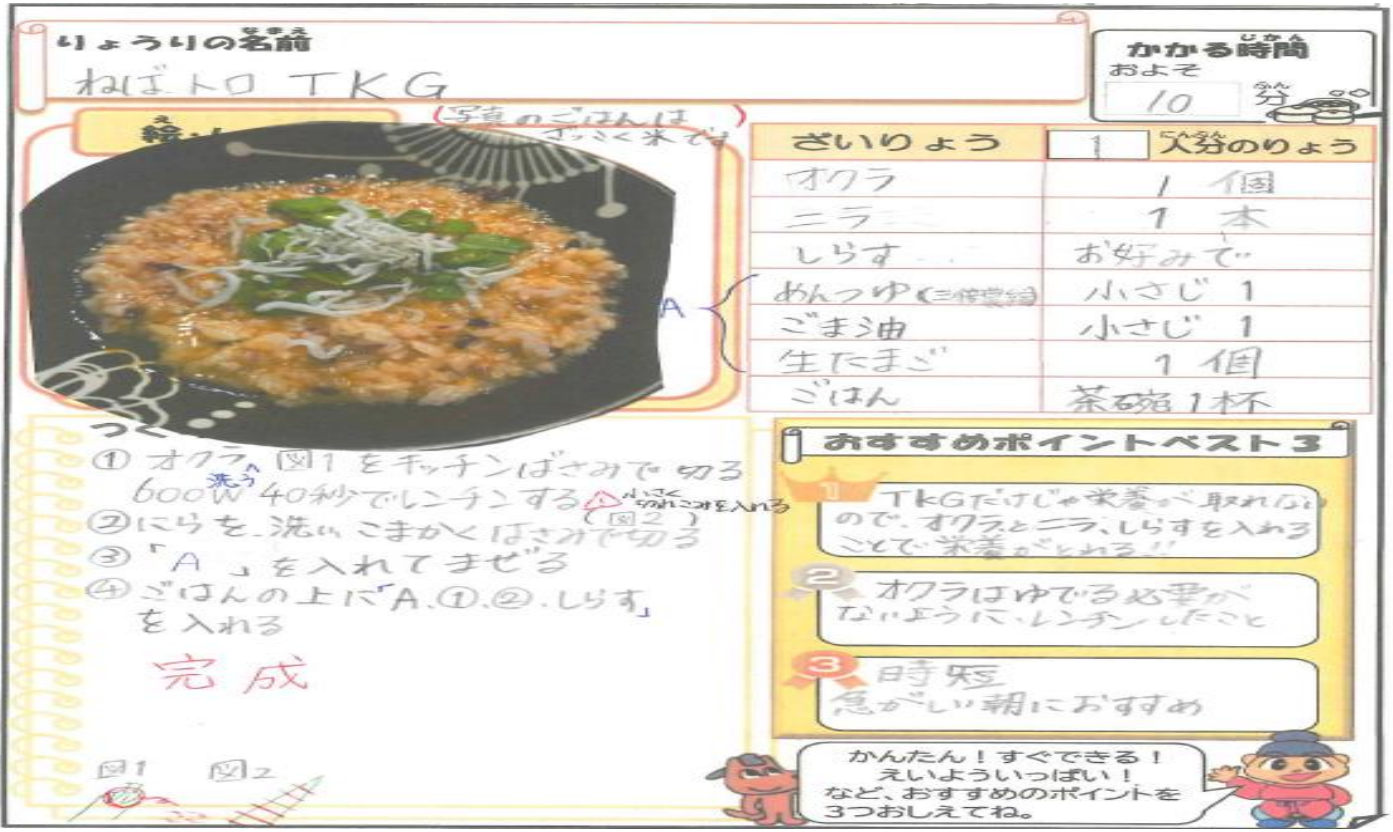 りょうりの名前
なまえ
ねばトロ TKG
かかる時間
じかん
およそ
10 分
ふん
え
絵
(写真のごはんは
ざっこく米です)
ざいりょう 1 人分のりょう
にんぶん
オクラ 1個
ニラ 1本
しらす お好みで
A
めんつゆ(三倍濃縮) 小さじ 1
ごま油 小さじ 1
生たまご 1個
ごはん 茶碗1杯
つく
① オクラ 洗う 図1をキッチンばさみで切る
600W 40秒でレンチンする 小さく切れこみを入れる
(図2)
②にらを、洗い こまかくはさみで切る
③「A」を入れてまぜる
④ごはんの上に「A、①、②、しらす」
を入れる
完成
図1 図2
おすすめポイントベスト3
1
TKGだけじゃ栄養が取れない
ので、オクラとニラ、しらすを入れる
ことで栄養がとれる!!
2
オクラはゆでる必要が
ないように、レンチンしたこと
3
時短
急がしい朝におすすめ
かんたん！すぐできる！
えいよういっぱい！
など、おすすめのポイントを
3つおしえてね。